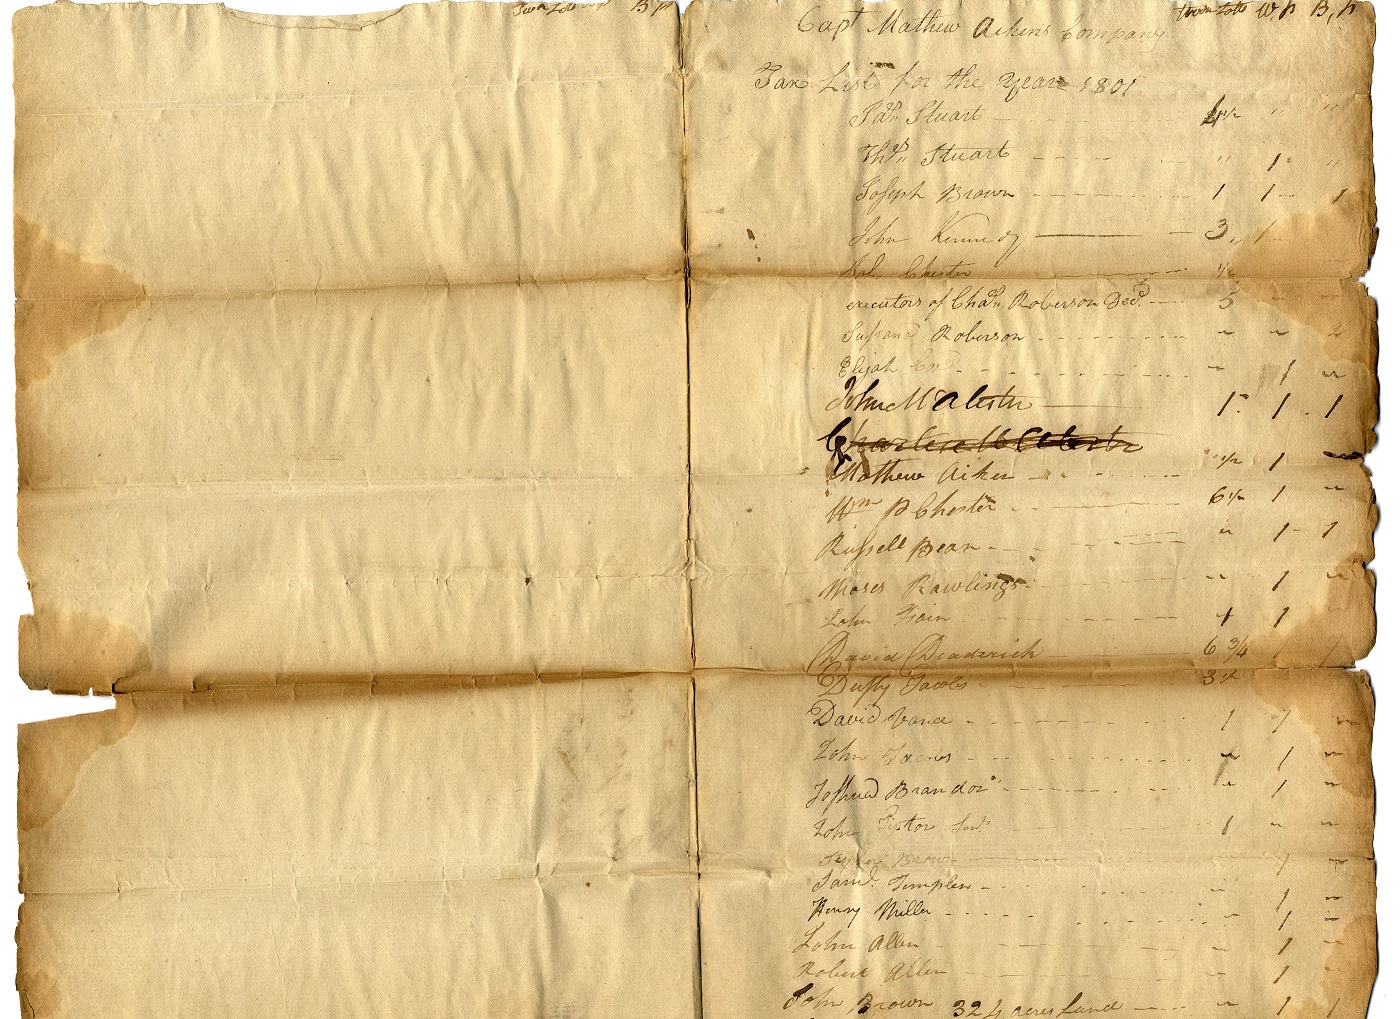 Town Lots B P
Town Lots W P B, P
Capt Mathew Aikens Company
Tax List for the Year 1801
Jas Stuart 4½ " "
Thos Stuart " 1 "
Joseph Brown 1 1 1
John Kennedy 3 1
Chester ½
executors of Chas Roberson Decd 5
Susana Roberson " " 2
Elijah 1 "
John McAlister 1 1 1
Mathew Aiken ½ 1 "
Wm P Chester 6½ 1 "
Russell Bean " 1 1
Moses Rawlings " 1 "
John Fain 1
David Deaderick 6 ¾ 1
Duffy Jacobs 3
David Vance 1 1 "
John " 1 "
Joshua Brandon " 1 "
John Tipton Senr 1 " "
Brown 1
Saml Templen " 1 "
Henry Miller " 1 "
John Allen " 1 "
Robert Allen " 1 "
John Brown 324 acres Land " 1 1